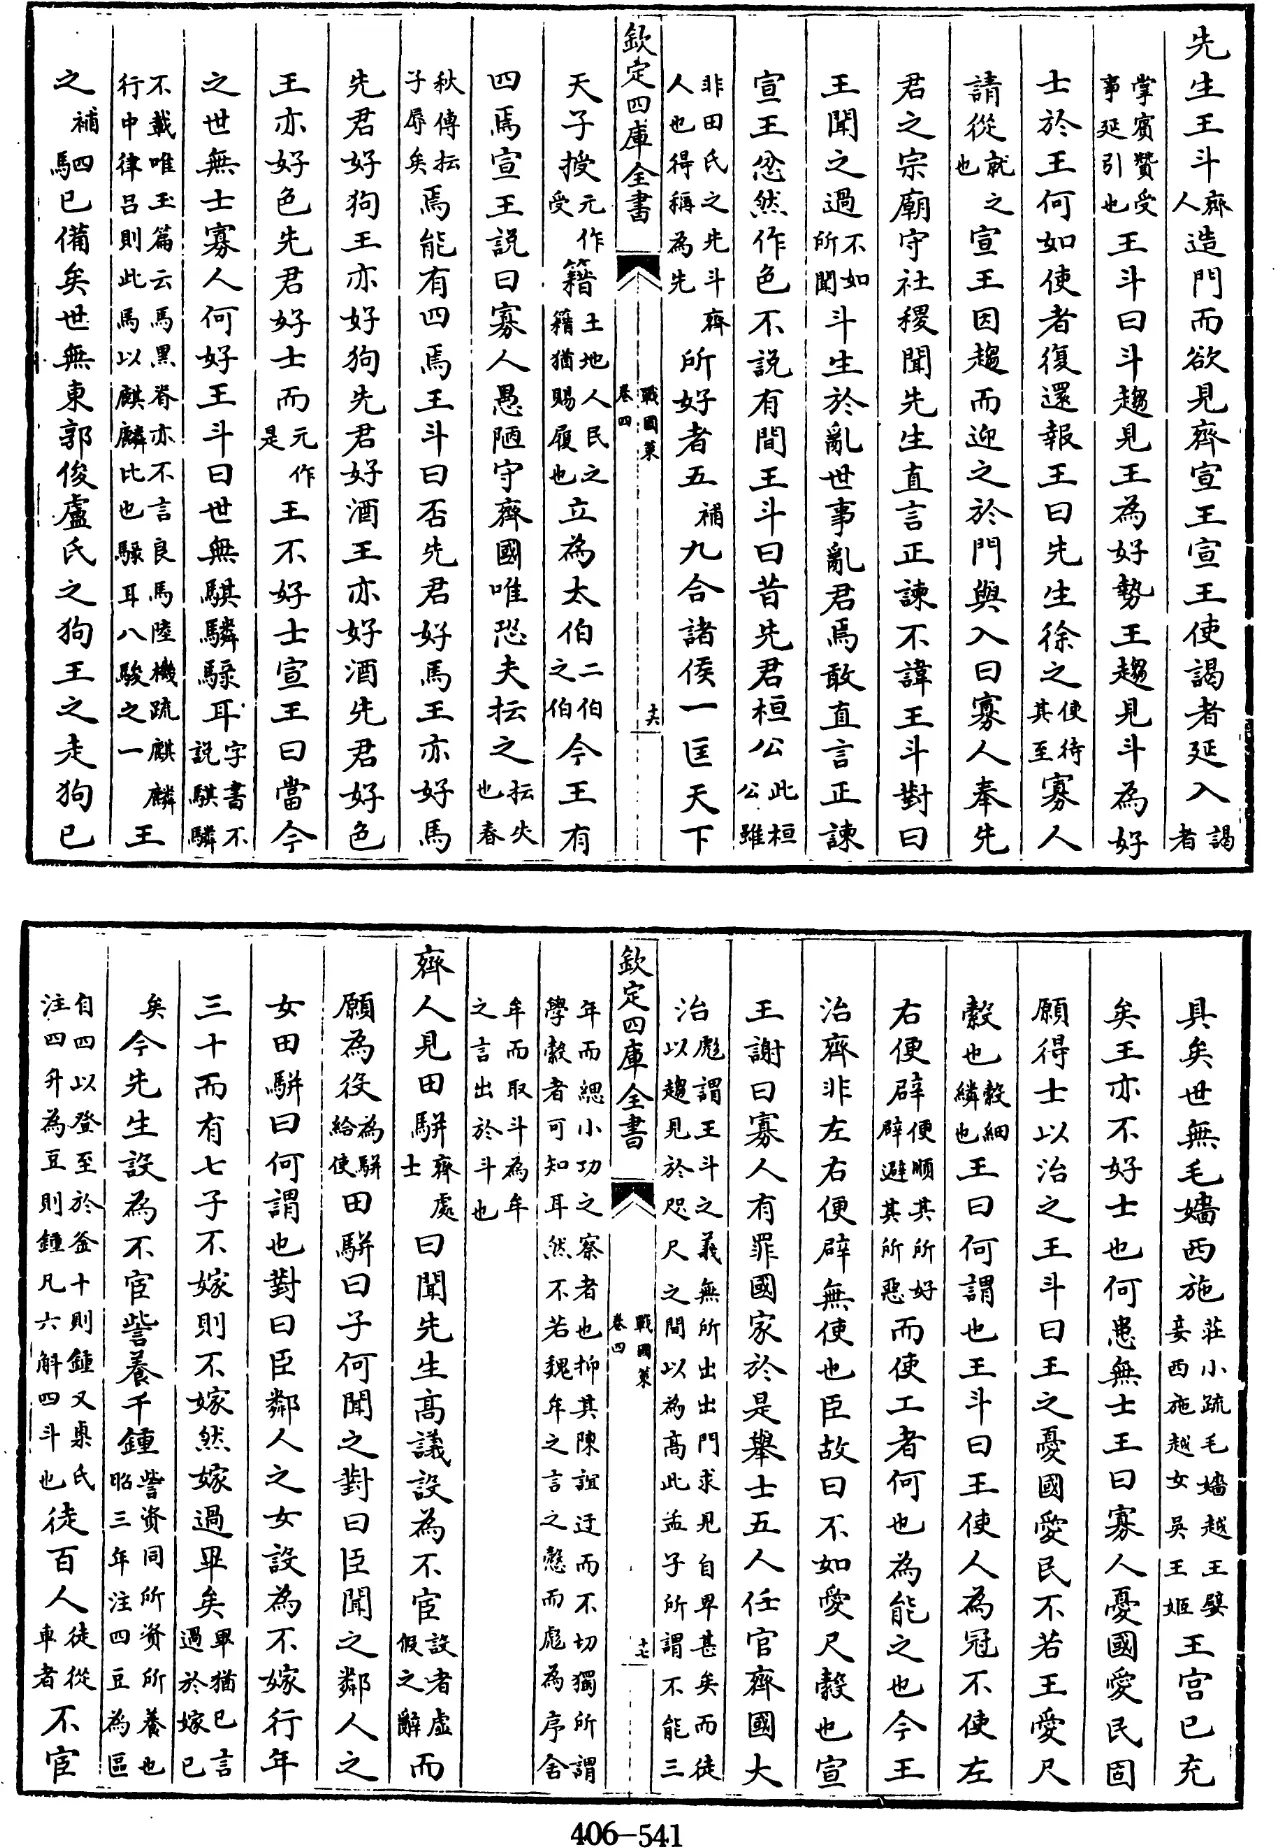 先生王斗齊人造門而欲見齊宣王宣王使謁者延入謁者
掌賓贊受事延引也王斗曰斗趨見王為好勢王趨見斗為好
士於王何如使者復還報王曰先生徐之使待其至寡人
請從就之也宣王因趨而迎之於門與入曰寡人奉先
君之宗廟守社稷聞先生直言正諫不諱王斗對曰
王聞之過不如所聞斗生於亂世事亂君焉敢直言正諫
宣王忿然作色不說有間王斗曰昔先君桓公此桓公雖
非田氏之先斗齊人也得稱為先所好者五補九合諸侯一匡天下
欽定四庫全書 戰國策 卷四 十六
天子授元作受籍土地人民之籍猶賜履也立為太伯二伯之伯今王有
四焉宣王說曰寡人愚陋守齊國唯恐夫抎之抎失也春
秋傳抎子辱矣焉能有四焉王斗曰否先君好馬王亦好馬
先君好狗王亦好狗先君好酒王亦好酒先君好色
王亦好色先君好士而元作是王不好士宣王曰當今
之世無士寡人何好王斗曰世無騏驎騄耳字書不說騏驎
不載唯玉篇云馬黑脊亦不言良馬陸機疏麒麟行中律呂則此馬以麒麟比也騄耳八駿之一王
之補駟已備矣世無東郭俊盧氏之狗王之走狗已
具矣世無毛嬙西施莊小疏毛嬙越王嬖妾西施越女吳王姬王宮已充
矣王亦不好士也何患無士王曰寡人憂國愛民固
願得士以治之王斗曰王之憂國愛民不若王愛尺
縠也縠細繗也王曰何謂也王斗曰王使人為冠不使左
右便辟便順其所好辟避其所惡而使工者何也為能之也今王
治齊非左右便辟無使也臣故曰不如愛尺縠也宣
王謝曰寡人有罪國家於是舉士五人任官齊國大
治彪謂王斗之義無所出出門求見自卑甚矣而徒以趨見於咫尺之間以為高此孟子所謂不能三
欽定四庫全書 戰國策 卷四 十七
年而緦小功之察者也抑其陳誼迂而不切獨所謂學縠者可知耳然不若魏牟之言之慤而彪為序舍
牟而取斗為牟之言出於斗也
齊人見田駢齊處士曰聞先生高議設為不宦設者虛假之辭而
願為役為駢給使田駢曰子何聞之對曰臣聞之鄰人之
女田駢曰何謂也對曰臣鄰人之女設為不嫁行年
三十而有七子不嫁則不嫁然嫁過畢矣畢猶已言過於嫁已
矣今先生設為不宦訾養千鍾訾資同所資所養也昭三年注四豆為區
自四以登至於釜十則鍾又㮚氏注四升為豆則鍾凡六斛四斗也徒百人徒從車者不宦
406-541